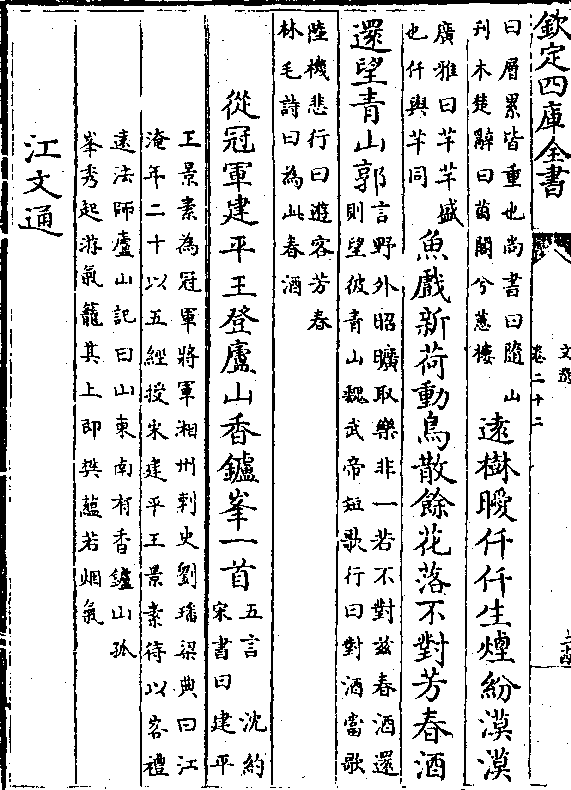 欽定四庫全書
文選
卷二十二
曰層累皆重也尚書曰隨山
刋木楚辭曰菌閣兮蕙樓
逺樹曖仟仟生煙紛漠漠
廣雅曰芊芊盛
也仟與芊同
魚戲新荷動鳥散餘花落不對芳春酒
還望青山郭
言野外昭曠取樂非一若不對兹春酒還
則望彼青山魏武帝短歌行曰對酒當歌
陸機悲行曰遊客芳春
林毛詩曰為此春酒
從冠軍建平王登廬山香鑪峯一首
五言 沈約
宋書曰建平
王景素為冠軍將軍湘州刺史劉璠梁典曰江
淹年二十以五經授宋建平王景素待以客禮
逺法師廬山記曰山東南有香鑪山孤
峯秀起游氣籠其上即樊蘊若烟氣
江文通